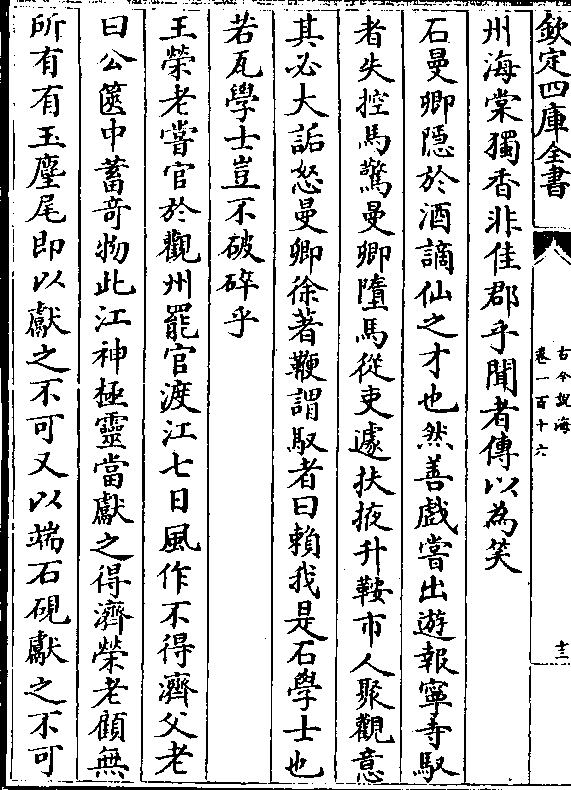 欽定四庫全書
古今說海
卷一百十六
十三
州海棠獨香非佳郡乎聞者傳以為笑
石曼卿隱於酒謫仙之才也然善戲嘗出遊報寧寺馭
者失控馬驚曼卿墮馬從吏遽扶掖升鞍市人聚觀意
其必大詬怒曼卿徐著鞭謂馭者曰賴我是石學士也
若瓦學士豈不破碎乎
王榮老嘗官於觀州罷官渡江七日風作不得濟父老
曰公篋中蓄奇物此江神極靈當獻之得濟榮老顧無
所有有玉麈尾即以獻之不可又以端石硯獻之不可